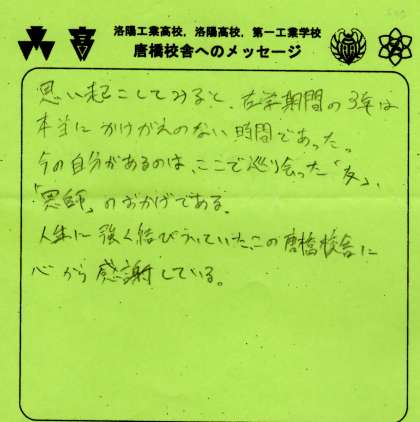 洛陽工業高校，洛陽高校，第一工業学校
唐橋校舎へのメッセージ
思い起こしてみると、在学期間の3年は
本当にかけがえのない時間であった。
今の自分があるのは、ここで巡り会った「友」、
「恩師」のおかげである。
人生に強く結びついていた、この唐橋校舎に
心から感謝している。